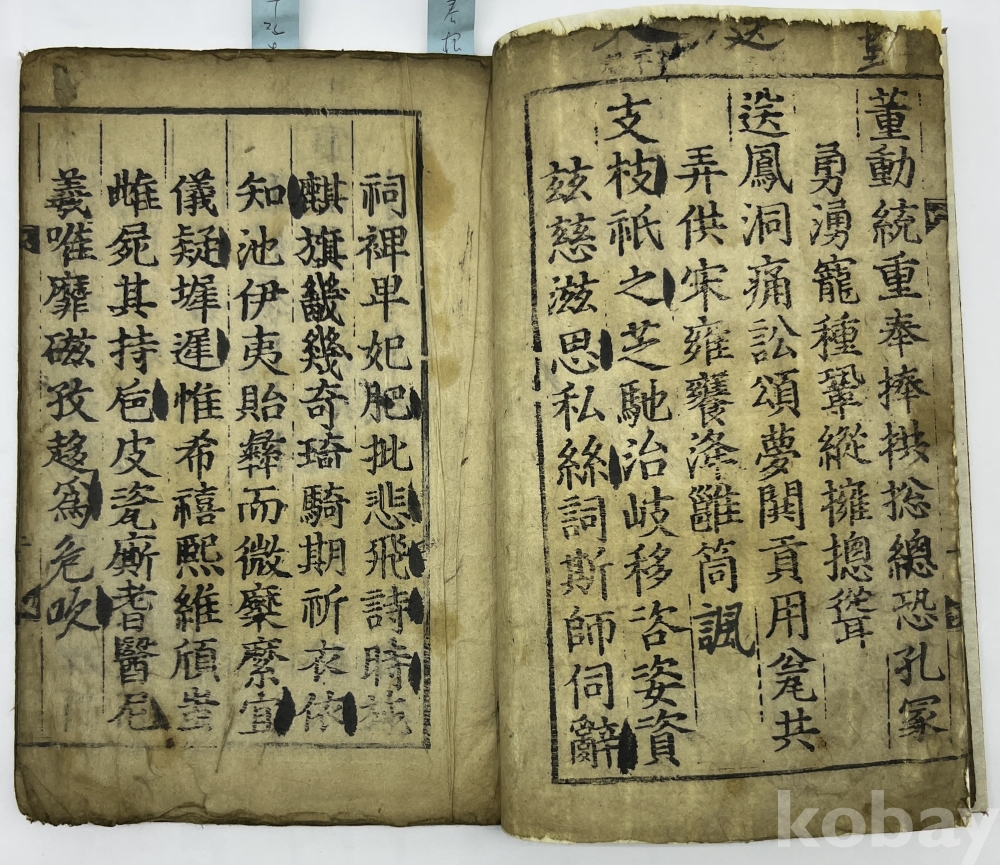 董動統重奉捧拱捴總恐孔冢
勇湧寵種鞏縱擁摠聳
送鳳洞痛訟頌夢閧貢用瓮共
弄供宋雍饔洚雝筒諷
支枝祇之芝馳治岐移咨姿資
玆慈滋思私絲詞斯師伺辭
祠裨卑妃肥批悲飛詩時
麒旗畿幾奇琦騎期祈衣依
知池伊夷貽彝而微糜縻宜
儀疑墀遲惟希禧熙維頎
雌屍其持卮皮瓷廝耆醫尼
羲唯靡磁孜趍爲危吹
kobay